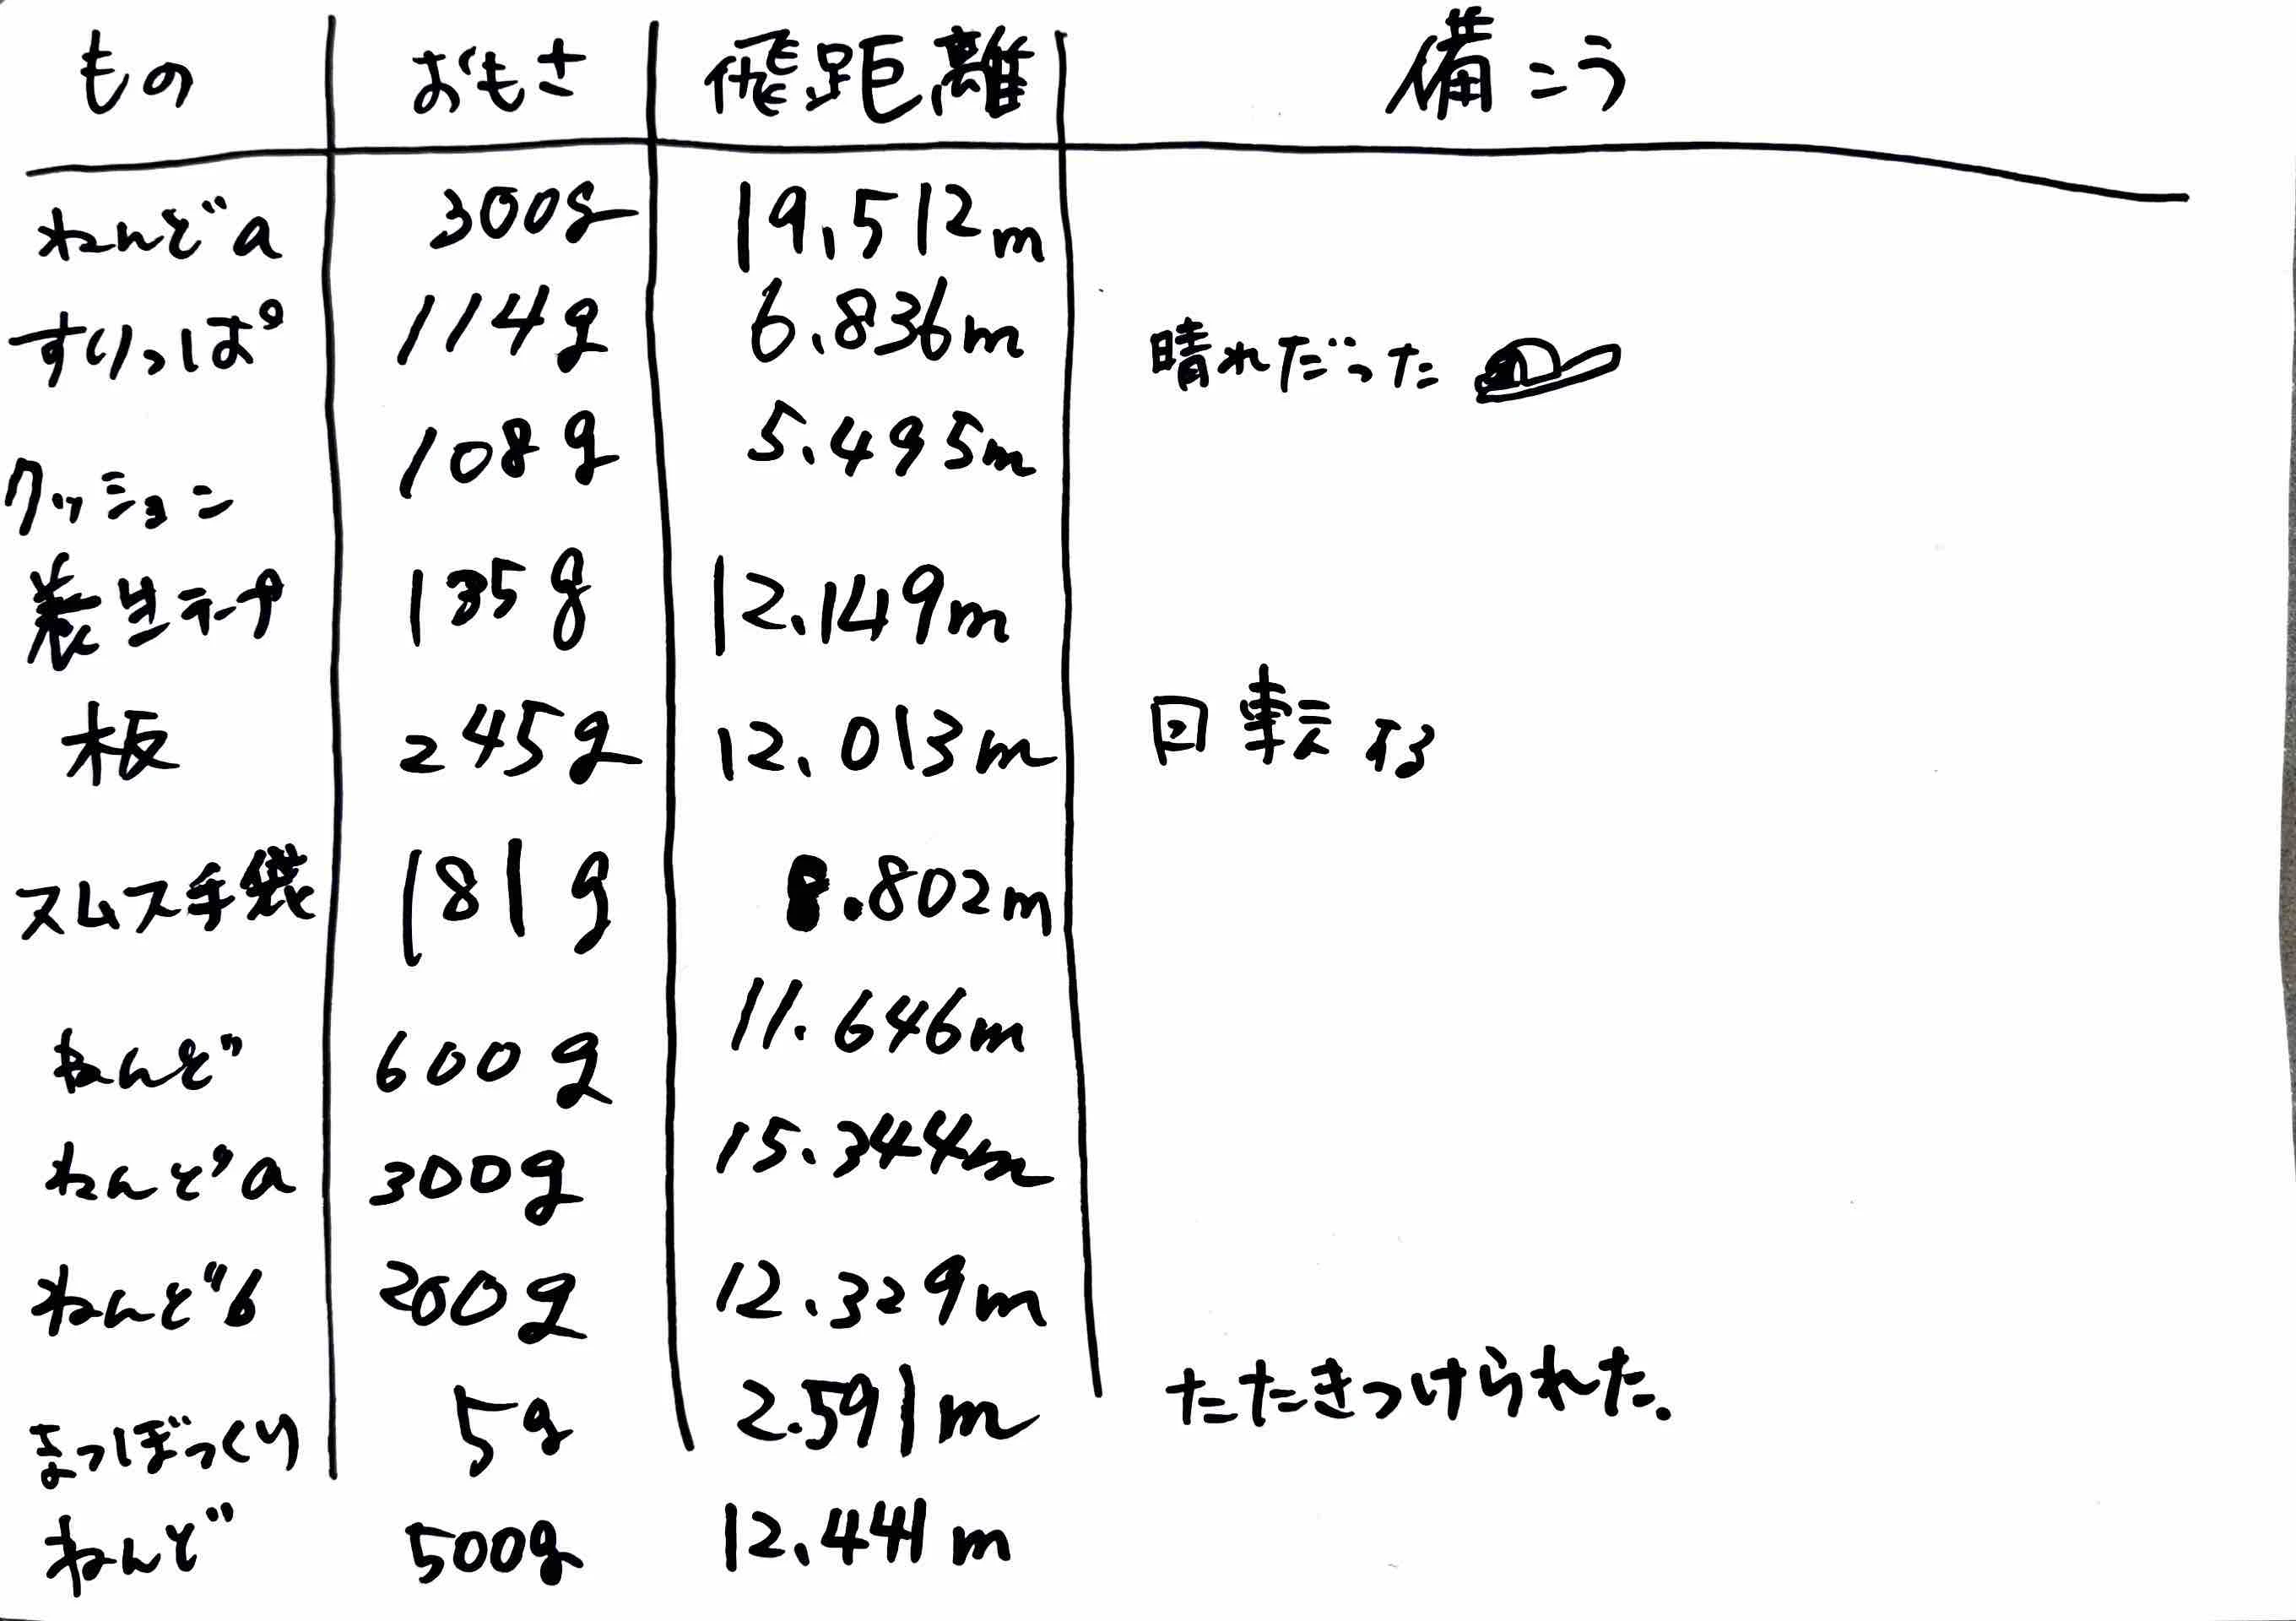 もの おもさ 飛距離 備こう
ねんど a 300g 19.512m
すりっぱ 114g 6.836m 晴れだった
クッション 108g 5.495m
養生テープ 135g 12.149m
板 245g 12.013m 回転する
スムス手袋 181g 8.802m
ねんど 600g 11.646m
ねんど a 300g 15.344m
ねんど b 200g 12.329m
まつぼっくり 5g 2.591m たたきつけられた。
ねんど 500g 12.441m